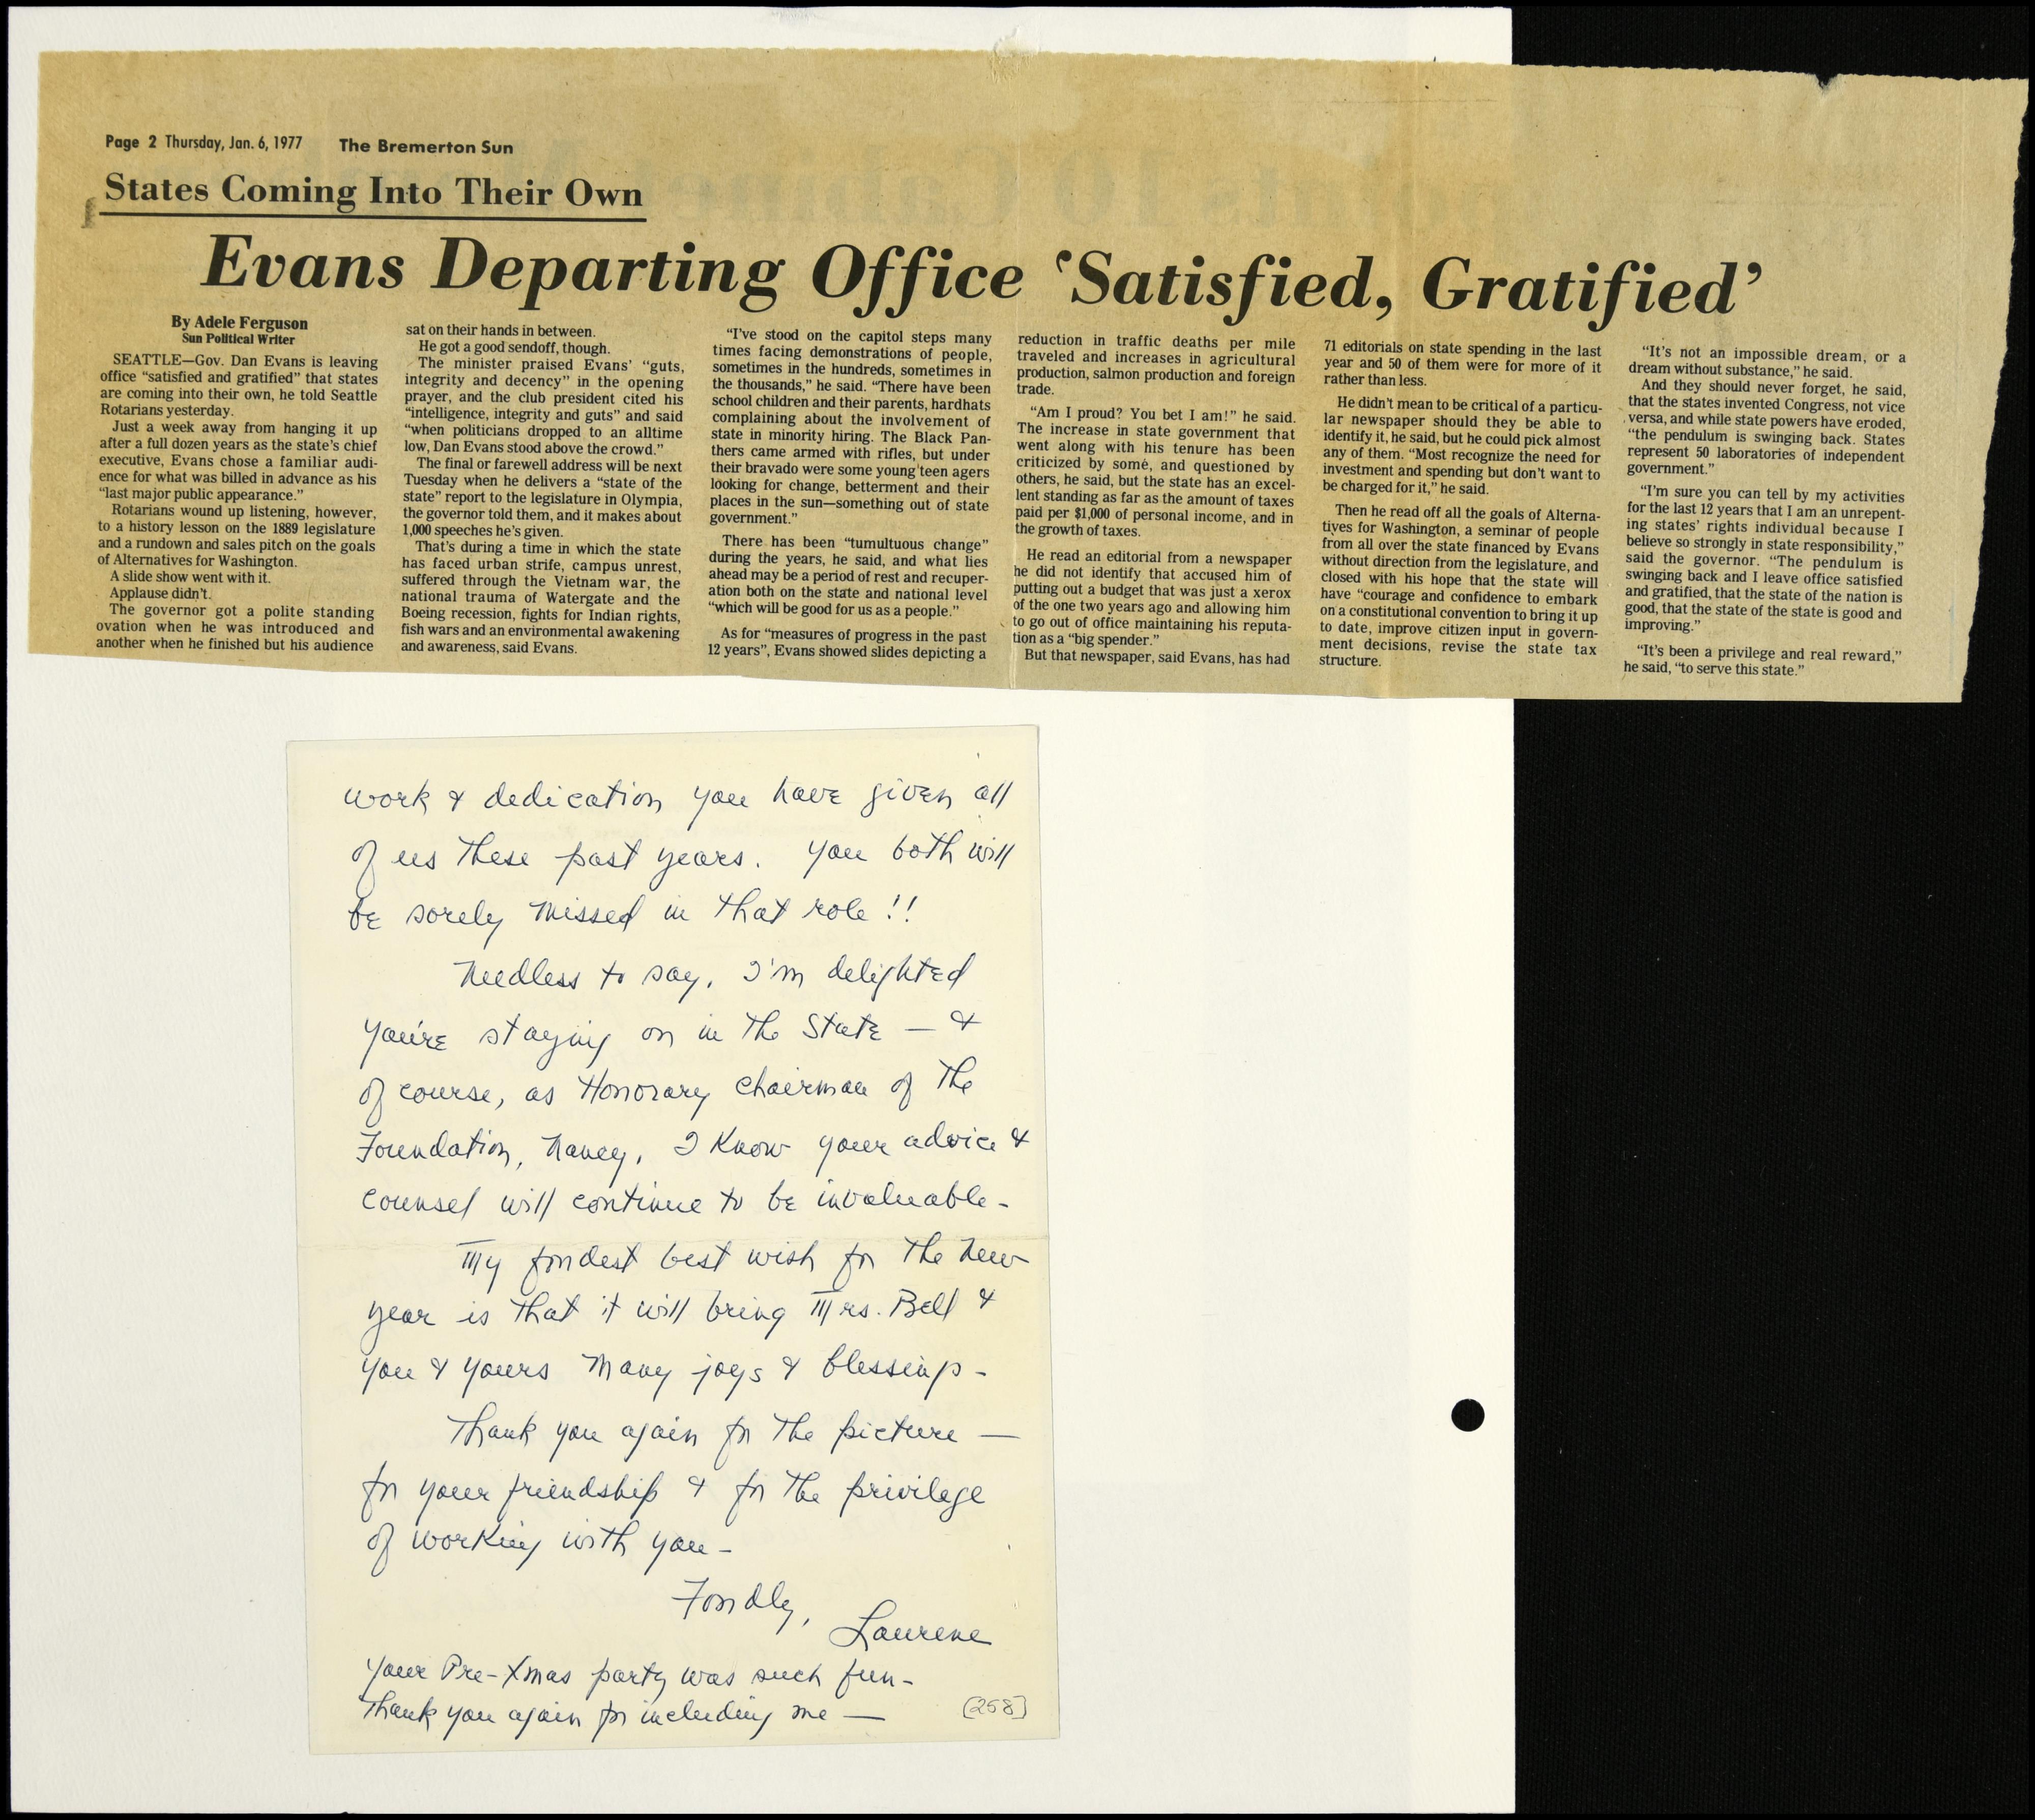 Page 2 Thursday, Jan. 6, 1977 The Bremerton Sun
States Coming Into Their Own
Evans Departing Office ‘Satisfied, Gratified’
By Adele Ferguson
Sun Political Writer
SEATTLE—Gov. Dan Evans is leaving
office “satisfied and gratified” that states
are coming into their own, he told Seattle
Rotarians yesterday.
Just a week away from hanging it up
after a full dozen years as the state’s chief
executive, Evans chose a familiar audi-
ence for what was billed in advance as his
“last major public appearance.”
Rotarians wound up listening, however,
to a history lesson on the 1889 legislature
and a rundown and sales pitch on the goals
of Alternatives for Washington.
A slide show went with it.
Applause didn’t.
The governor got a polite standing
ovation when he was introduced and
another when he finished but his audience
sat on their hands in between.
He got a good sendoff, though.
The minister praised Evans’ “guts,
integrity and decency” in the opening
prayer, and the club president cited his
“intelligence, integrity and guts” and said
“when politicians dropped to an alltime
low, Dan Evans stood above the crowd.”
The final or farewell address will be next
Tuesday when he delivers a “state of the
state” report to the legislature in Olympia,
the governor told them, and it makes about
1,000 speeches he’s given.
That’s during a time in which the state
has faced urban strife, campus unrest,
suffered through the Vietnam war, the
national trauma of Watergate and the
Boeing recession, fights for Indian rights,
fish wars and an environmental awakening
and awareness, said Evans.
“I’ve stood on the capitol steps many
times facing demonstrations of people,
sometimes in the hundreds, sometimes in
the thousands,” he said. “There have been
school children and their parents, hardhats
complaining about the involvement of
state in minority hiring. The Black Pan-
thers came armed with rifles, but under
their bravado were some young teen agers
looking for change, betterment and their
places in the sun—something out of state
government.”
There has been “tumultuous change”
during the years, he said, and what lies
ahead may be a period of rest and recuper-
ation both on the state and national level
“which will be good for us as a people.”
As for “measures of progress in the past
12 years”, Evans showed slides depicting a
reduction in traffic deaths per mile
traveled and increases in agricultural
production, salmon production and foreign
trade.
“Am I proud? You bet I am!” he said.
The increase in state government that
went along with his tenure has been
criticized by some, and questioned by
others, he said, but the state has an excel-
lent standing as far as the amount of taxes
paid per $1,000 of personal income, and in
the growth of taxes.
He read an editorial from a newspaper
he did not identify that accused him of
putting out a budget that was just a xerox
of the one two years ago and allowing him
to go out of office maintaining his reputa-
tion as a “big spender.”
But that newspaper, said Evans, has had
71 editorials on state spending in the last
year and 50 of them were for more of it
rather than less.
He didn’t mean to be critical of a particu-
lar newspaper should they be able to
identify it, he said, but he could pick almost
any of them. “Most recognize the need for
investment and spending but don’t want to
be charged for it,” he said.
Then he read off all the goals of Alterna-
tives for Washington, a seminar of people
from all over the state financed by Evans
without direction from the legislature, and
closed with his hope that the state will
have “courage and confidence to embark
on a constitutional convention to bring it up
to date, improve citizen input in govern-
ment decisions, revise the state tax
structure.
“It’s not an impossible dream, or a
dream without substance,” he said.
And they should never forget, he said,
that the states invented Congress, not vice
versa, and while state powers have eroded,
“the pendulum is swinging back. States
represent 50 laboratories of independent
government.”
“I’m sure you can tell by my activities
for the last 12 years that I am an unrepent-
ing states’ rights individual because I
believe so strongly in state responsibility,”
said the governor. “The pendulum is
swinging back and I leave office satisfied
and gratified, that the state of the nation is
good, that the state of the state is good and
improving.”
“It’s been a privilege and real reward,”
he said, “to serve this state.”
work & dedication you have given all
of us these past years. You both will
be sorely missed in that role!!
Needless to say, I'm delighted
you're staying on in the State — &
of course, as Honorary Chairman of the
Foundation, Nancy, I know your advice &
counsel will continue to be invaluable -
My fondest best wish for the New
year is that it will bring Mrs. Bell &
you & yours many joys & blessings -
Thank you again for the picture —
for your friendship & for the privilege
of working with you -
Fondly,
Laurene
Your Pre-Xmas party was such fun -
Thank you again for including me —
[258]